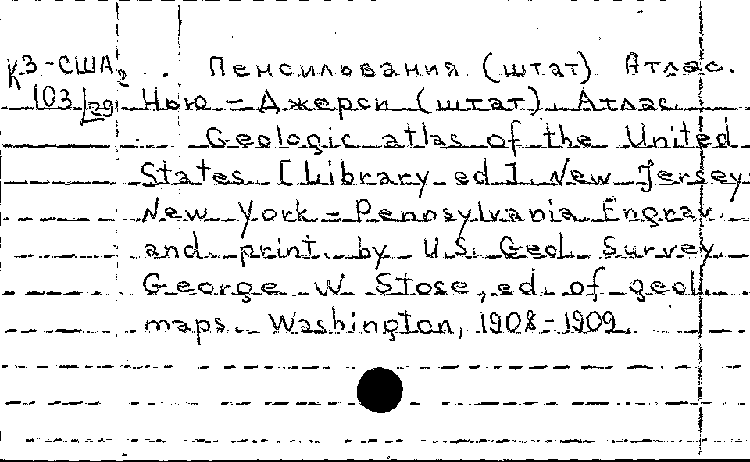 К3-США₂ . Пенсилвания (штат) Атлас.
103/29 Нью-Джерси (штат). Атлас.
Geologic atlas of the United
States. [Library ed]. New Jersey
New York-Pennsylvania. Engrav.
and print. by U.S. Geol. Survey
George W Stose, ed. of geol.
maps. Washington, 1908-1909.